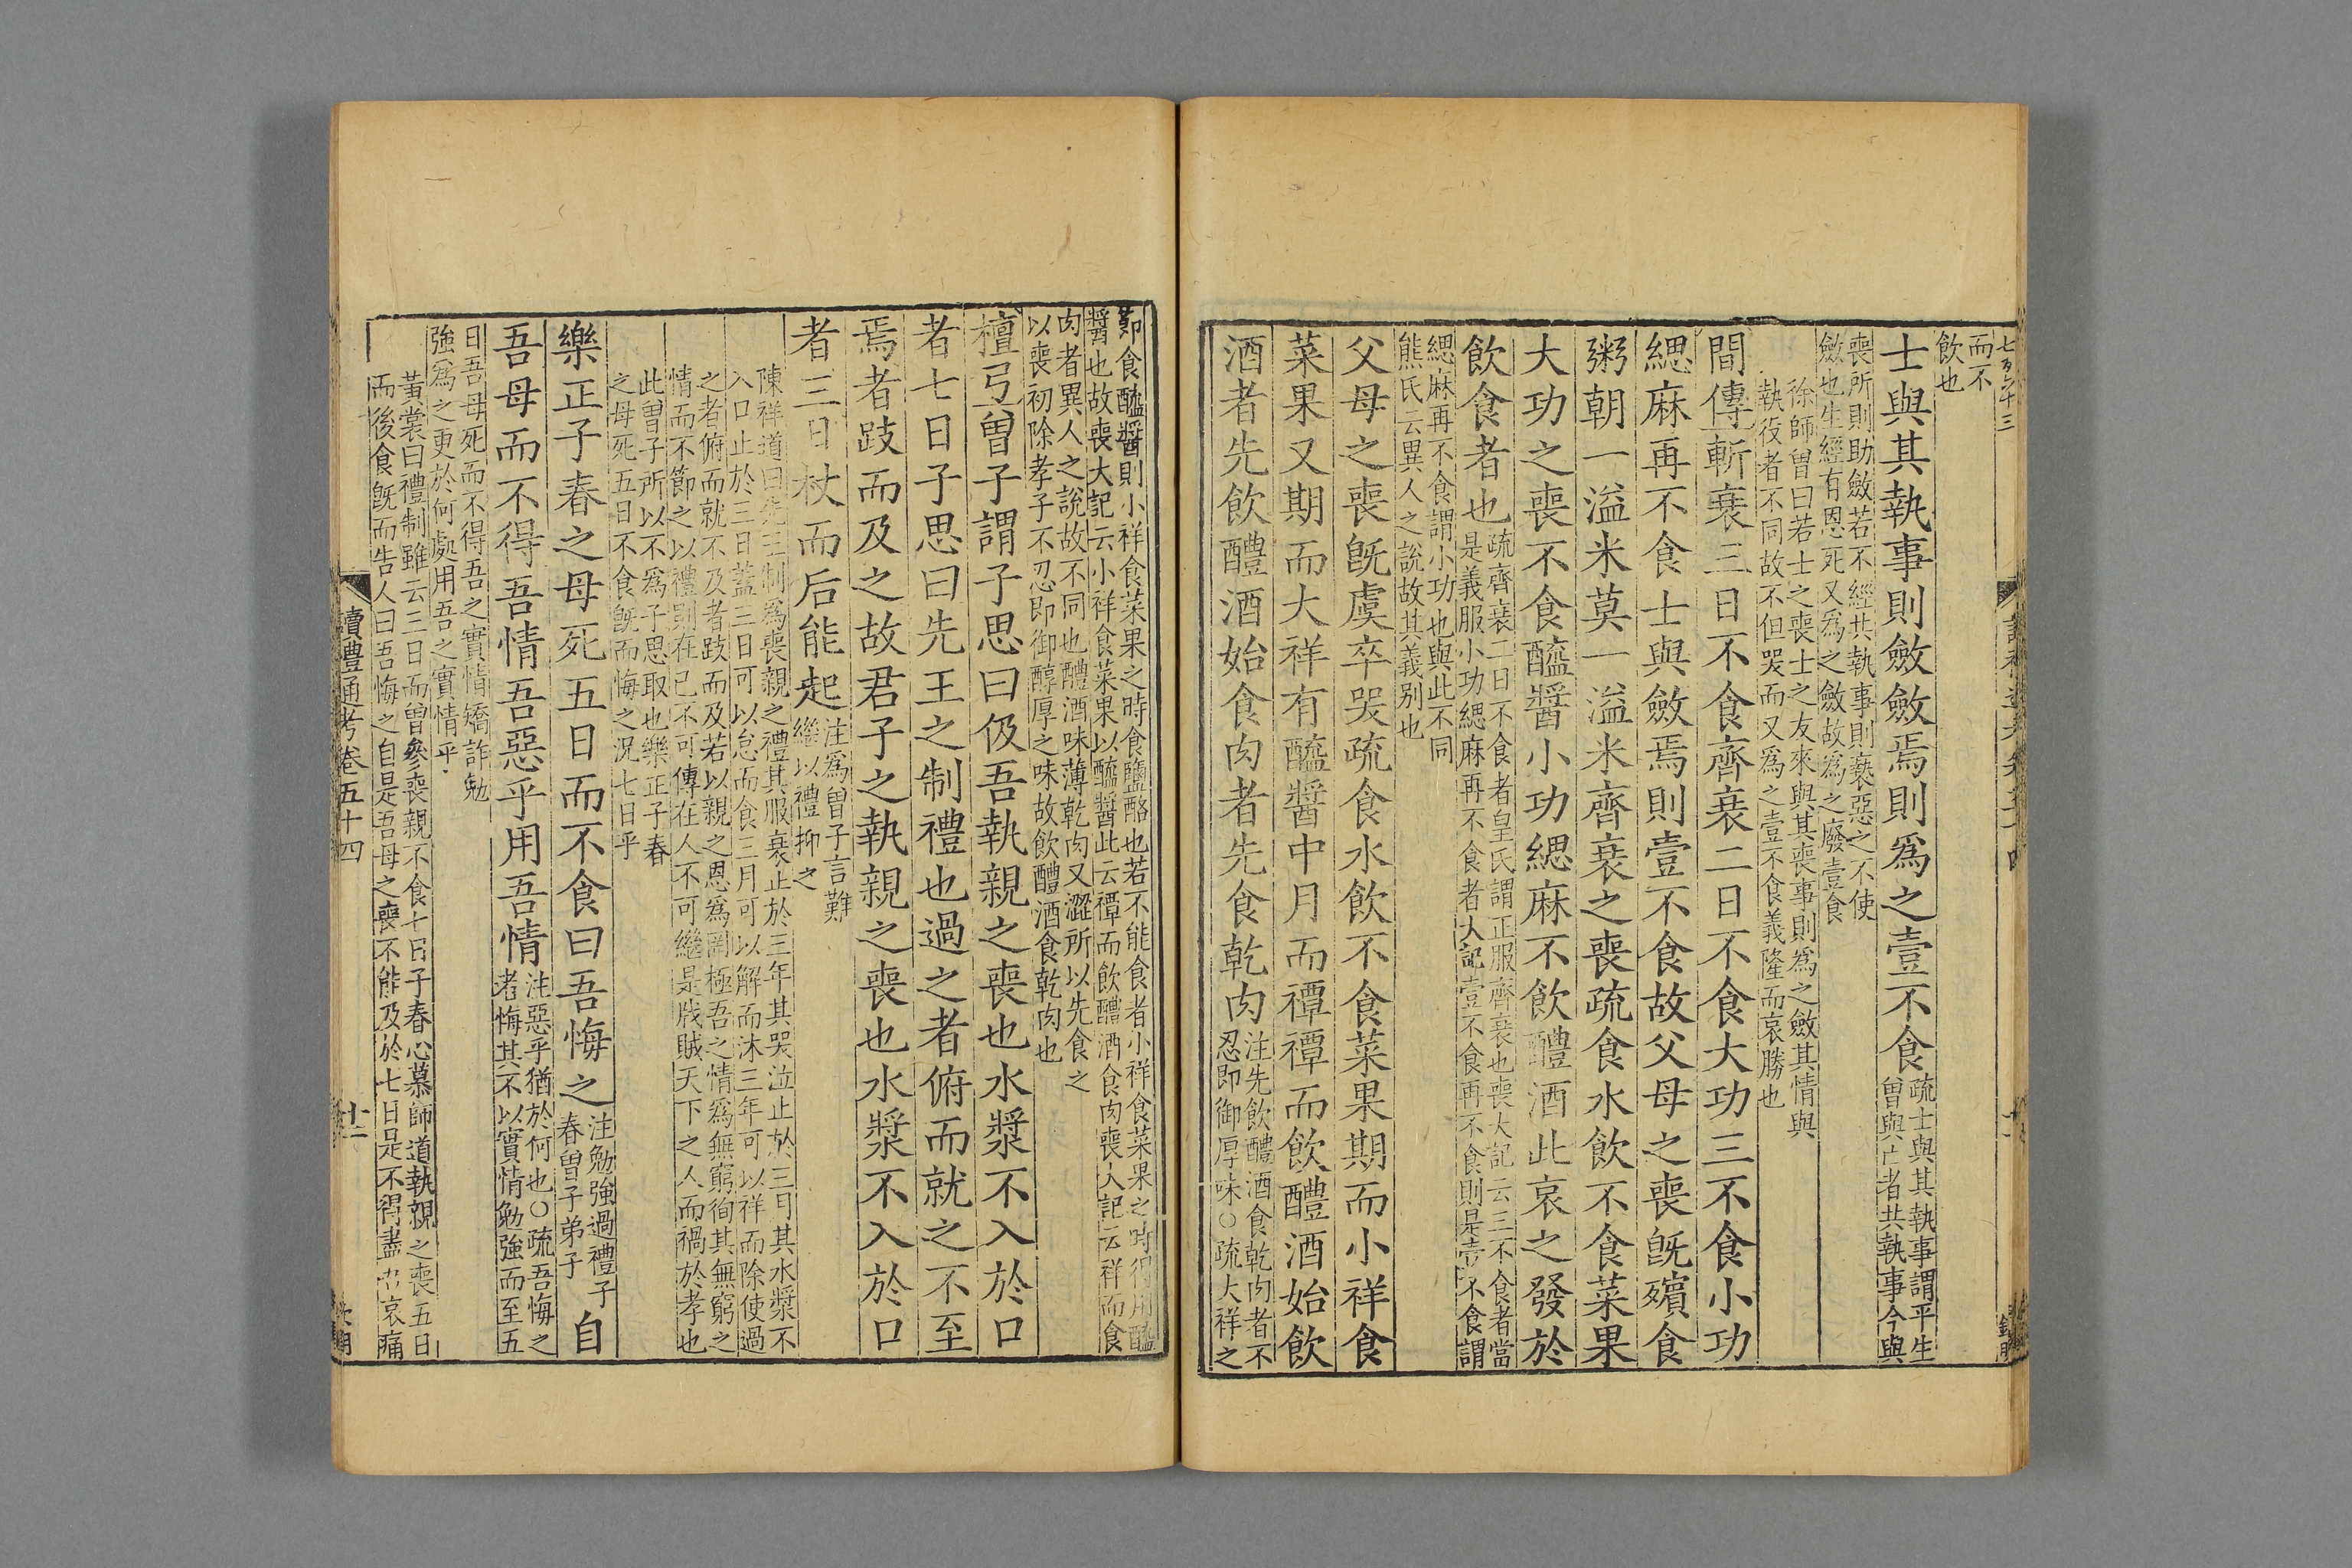 而不
飲也
士與其執事則斂斂焉則爲之壹不食
疏士與其執事謂平生
曾與亡者共執事今與
喪所則助斂若不經共執事則褻惡之不使
斂也生經有恩死又爲之斂故爲之廢壹食
徐師曾曰若士之喪士之友來與其喪事則爲之斂其情與
執役者不同故不但哭而又爲之壹不食義隆而哀勝也
間傳斬衰三日不食齊衰二日不食大功三不食小功
緦麻再不食士與斂焉則壹不食故父母之喪旣殯食
粥朝一溢米莫一溢米齊衰之喪疏食水飲不食菜果
大功之喪不食醯醬小功緦麻不飲醴酒此哀之發於
飲食者也
疏齊衰二日不食者皇氏謂正服齊衰也喪大記云三不食者當
是義服小功緦麻再不食者大記壹不食再不食則是壹不食謂
緦麻再不食謂小功也與此不同
熊氏云異人之說故其義别也
父母之喪旣虞卒哭疏食水飲不食菜果期而小祥食
菜果又期而大祥有醯醬中月而禫禫而飲醴酒始飲
酒者先飲醴酒始食肉者先食乾肉
注先飲醴酒食乾肉者不
忍即御厚味○疏大祥之
節食醯醬則小祥食菜果之時食鹽酪也若不能食者小祥食菜果之時得用醯
醬也故喪大記云小祥食菜果以醯醬此云禫而飲醴酒食肉喪大記云祥而食
肉者異人之說故不同也醴酒味薄乾肉又澀所以先食之
以喪初除孝子不忍即御醇厚之味故飲醴酒食乾肉也
檀弓曾子謂子思曰伋吾執親之喪也水漿不入於口
者七日子思曰先王之制禮也過之者俯而就之不至
焉者跂而及之故君子之執親之喪也水漿不入於口
者三日杖而后能起
注爲曾子言難
繼以禮抑之
陳祥道曰先王制爲喪親之禮其服衰止於三年其哭泣止於三月其水漿不
入口止於三日蓋三日可以怠而食三月可以解而沐三年可以祥而除使過
之者俯而就不及者跂而及若以親之恩爲罔極吾之情爲無窮徇其無窮之
情而不節之以禮别在己不可傳在人不可繼是戕賊天下之人而禍於孝也
此曾子所以不爲子思取也樂正子春
之母死五日不食旣而悔之況七日乎
樂正子春之母死五日而不食曰吾悔之
注勉強過禮子
春曾子弟子
自
吾母而不得吾情吾惡乎用吾情
注惡乎猶於何也○疏吾悔之
者悔其不以實情勉強而至五
日吾母死而不得吾之實情矯詐勉
強爲之更於何處用吾之實情乎
黃裳曰禮制雖云三日而曾參喪親不食七日子春心慕師道執親之喪五日
而後食旣而告人曰吾悔之自是吾母之喪不能及於七日是不得盡哀痛
讀禮通考卷五十四
十二